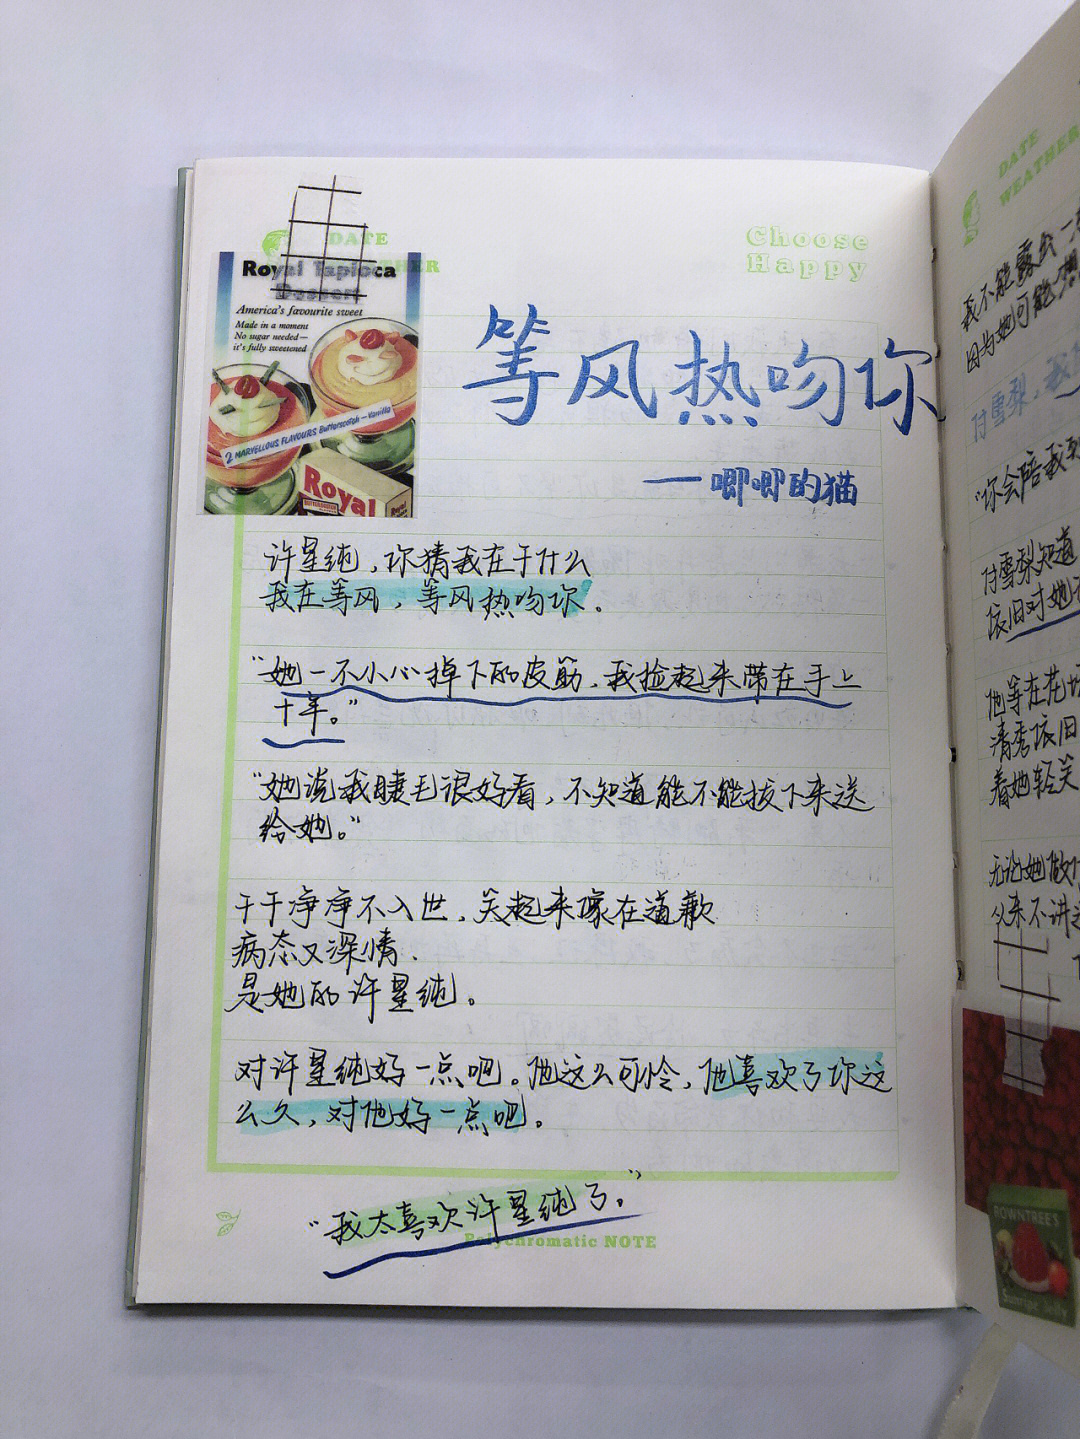 DATE
WEATHER
Choose
Happy
Royal Tapioca
Dessert
America's favourite sweet
Made in a moment
No sugar needed—
it's fully sweetened
2 MARVELLOUS FLAVOURS Butterscotch—Vanilla
Royal
等风热吻你
——唧唧的猫
许星纯，你猜我在干什么
我在等风，等风热吻你。
“她一不小心掉下的皮筋，我捡起来带在手上
十年。”
“她说我睫毛很好看，不知道能不能拔下来送
给她。”
干干净净不入世，笑起来像在道歉
病态又深情.
是她的许星纯。
对许星纯好一点吧。他这么可怜，他喜欢了你这
么久，对他好一点吧。
“我太喜欢许星纯了。”
Polychromatic NOTE
DATE
WEATHER
我不能露出一
因为她可能
付雪梨，我
“你会陪我到
付雪梨知道
依旧对她
他等在花
清秀依旧
着她轻笑
无论她做什
从来不讲
ROWNTREE'S